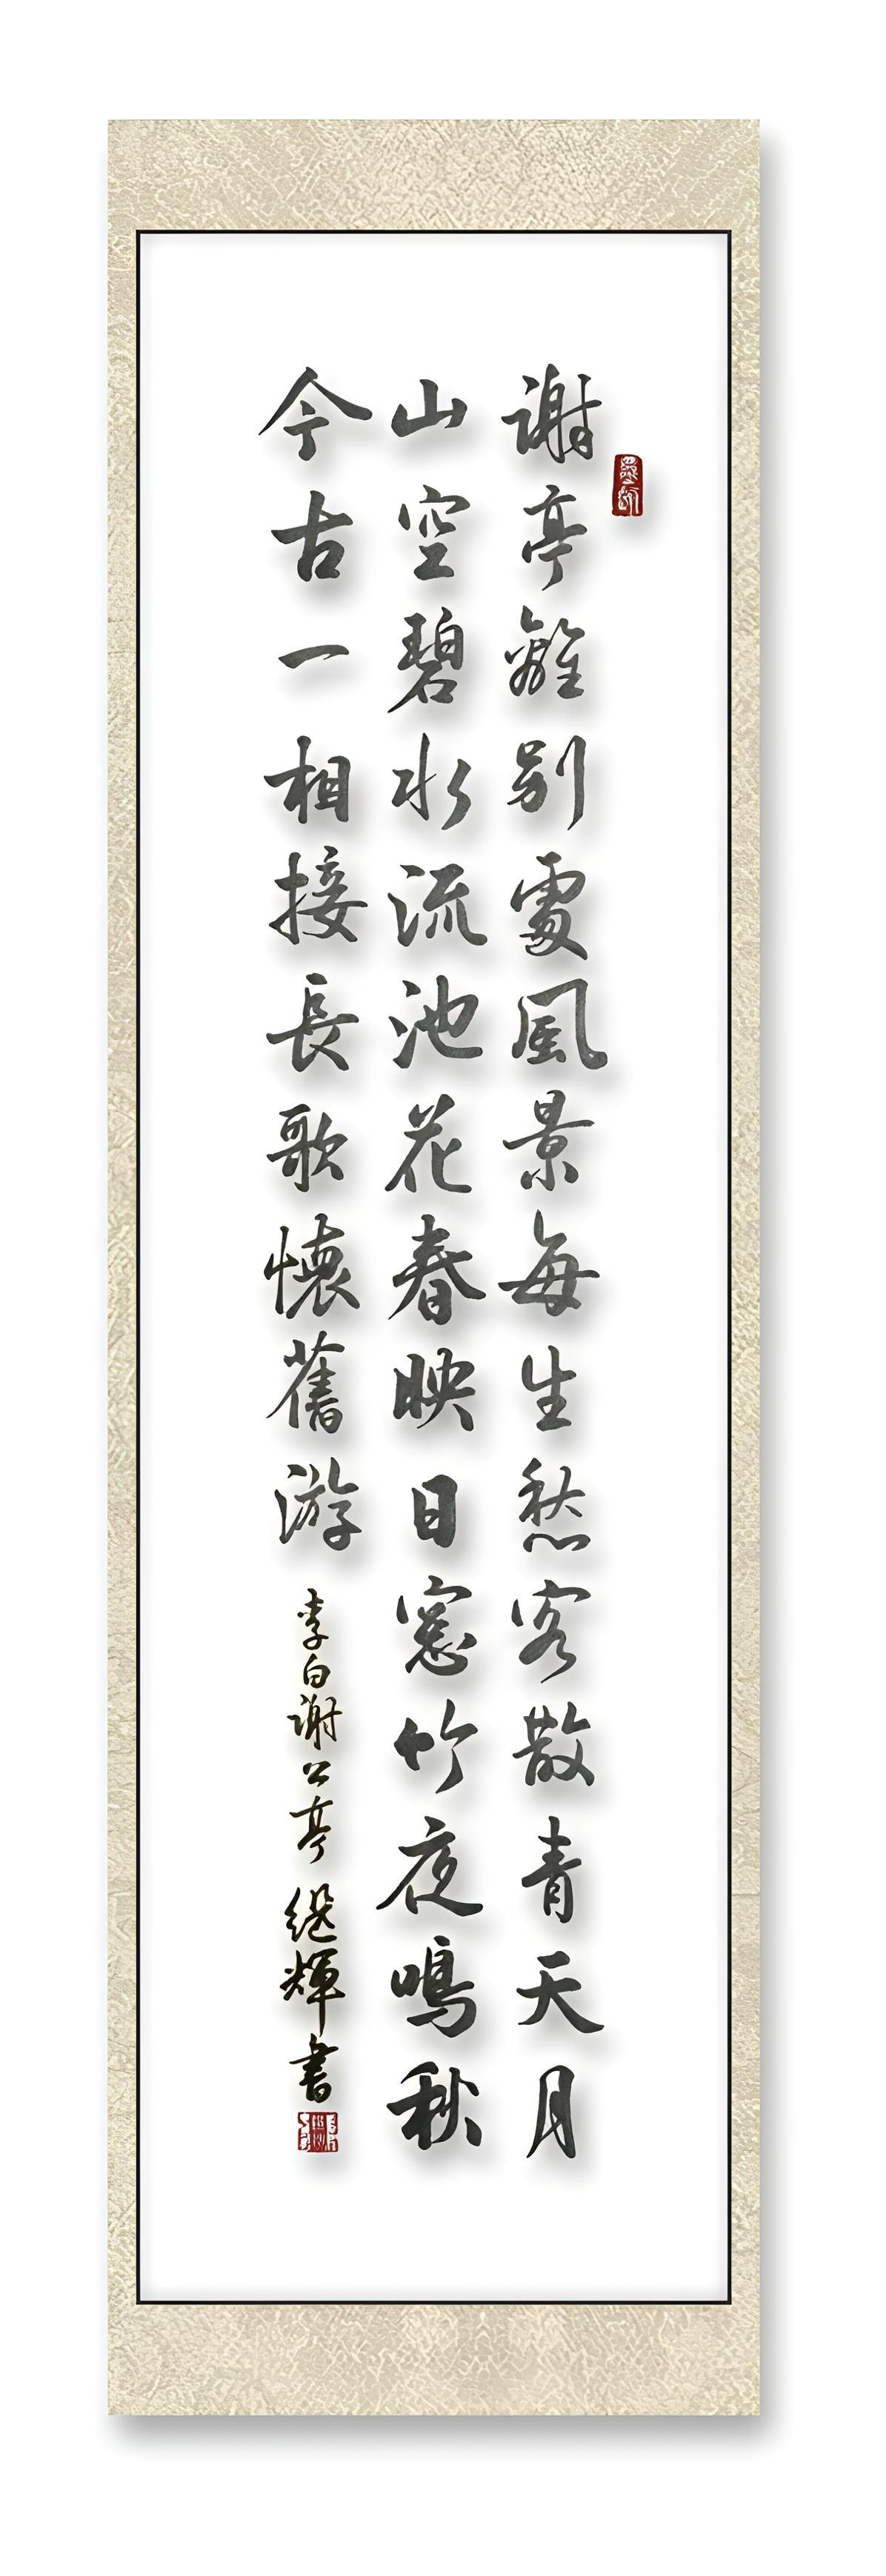 謝亭離別處風景每生愁客散青天月
山空碧水流池花春映日窓竹夜鳴秋
今古一相接長歌懷舊游
李白謝公亭 继輝書